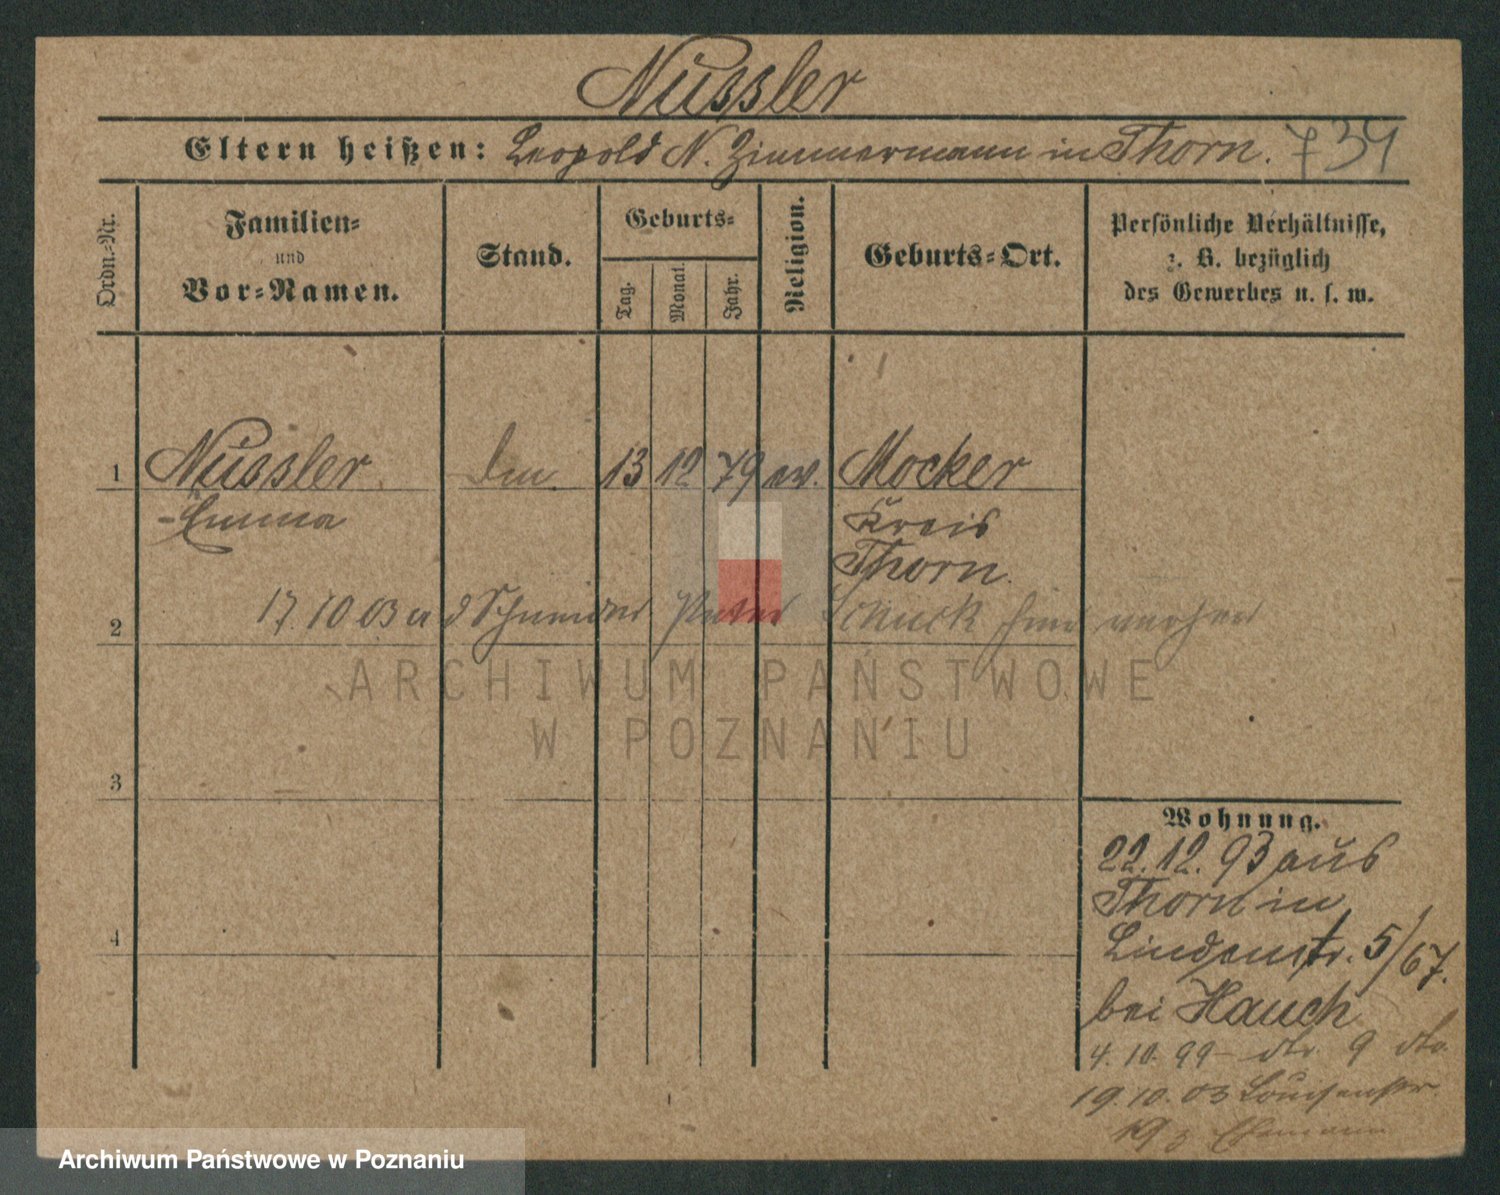 Nüssler
Eltern heißen: Leopold N. Zimmermann in Thorn. 734
Ordn.-Nr.
Familien-
und
Vor-Namen.
Stand.
Geburts-
Tag.
Monat.
Jahr.
Religion.
Geburts-Ort.
Persönliche Verhältnisse,
z. B. bezüglich
des Gewerbes u. s. w.
1 Nüssler 13 12 79 ev. Mocker
- Emma Kreis
Thorn.
17.10 03 a d Schneider Peter
2
ARCHIWUM PAŃSTWOWE
W POZNANIU
3
Wohnung.
22.12.93 aus
Thorn in
4
Lindenstr. 5/67.
bei Hauch
4.10.99 - dto. 9 dto.
19.10.03 Louisenstr.
19 z Ehemann
Archiwum Państwowe w Poznaniu